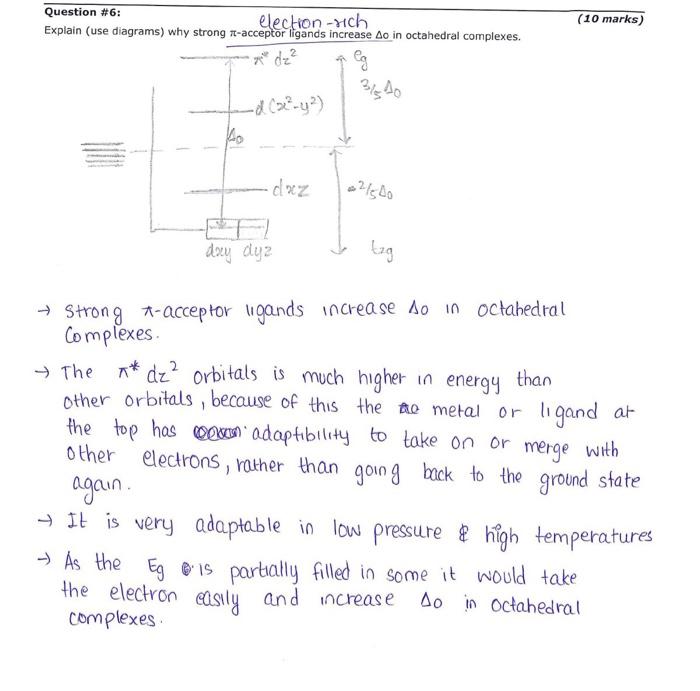 Question #6:
(10 marks)
election-rich
Explain (use diagrams) why strong π-acceptor ligands increase Δo in octahedral complexes.
π* dz²
eg
3/5 Δo
d(x²-y²)
Δo
dxz
-2/5 Δo
dxy dyz
t2g
→ Strong π-acceptor ligands increase Δo in octahedral
Complexes.
→ The π* dz² orbitals is much higher in energy than
other orbitals, because of this the metal or ligand at
the top has adaptibility to take on or merge with
other electrons, rather than going back to the ground state
again.
→ It is very adaptable in low pressure & high temperatures
→ As the Eg is partially filled in some it would take
the electron easily and increase Δo in octahedral
complexes.